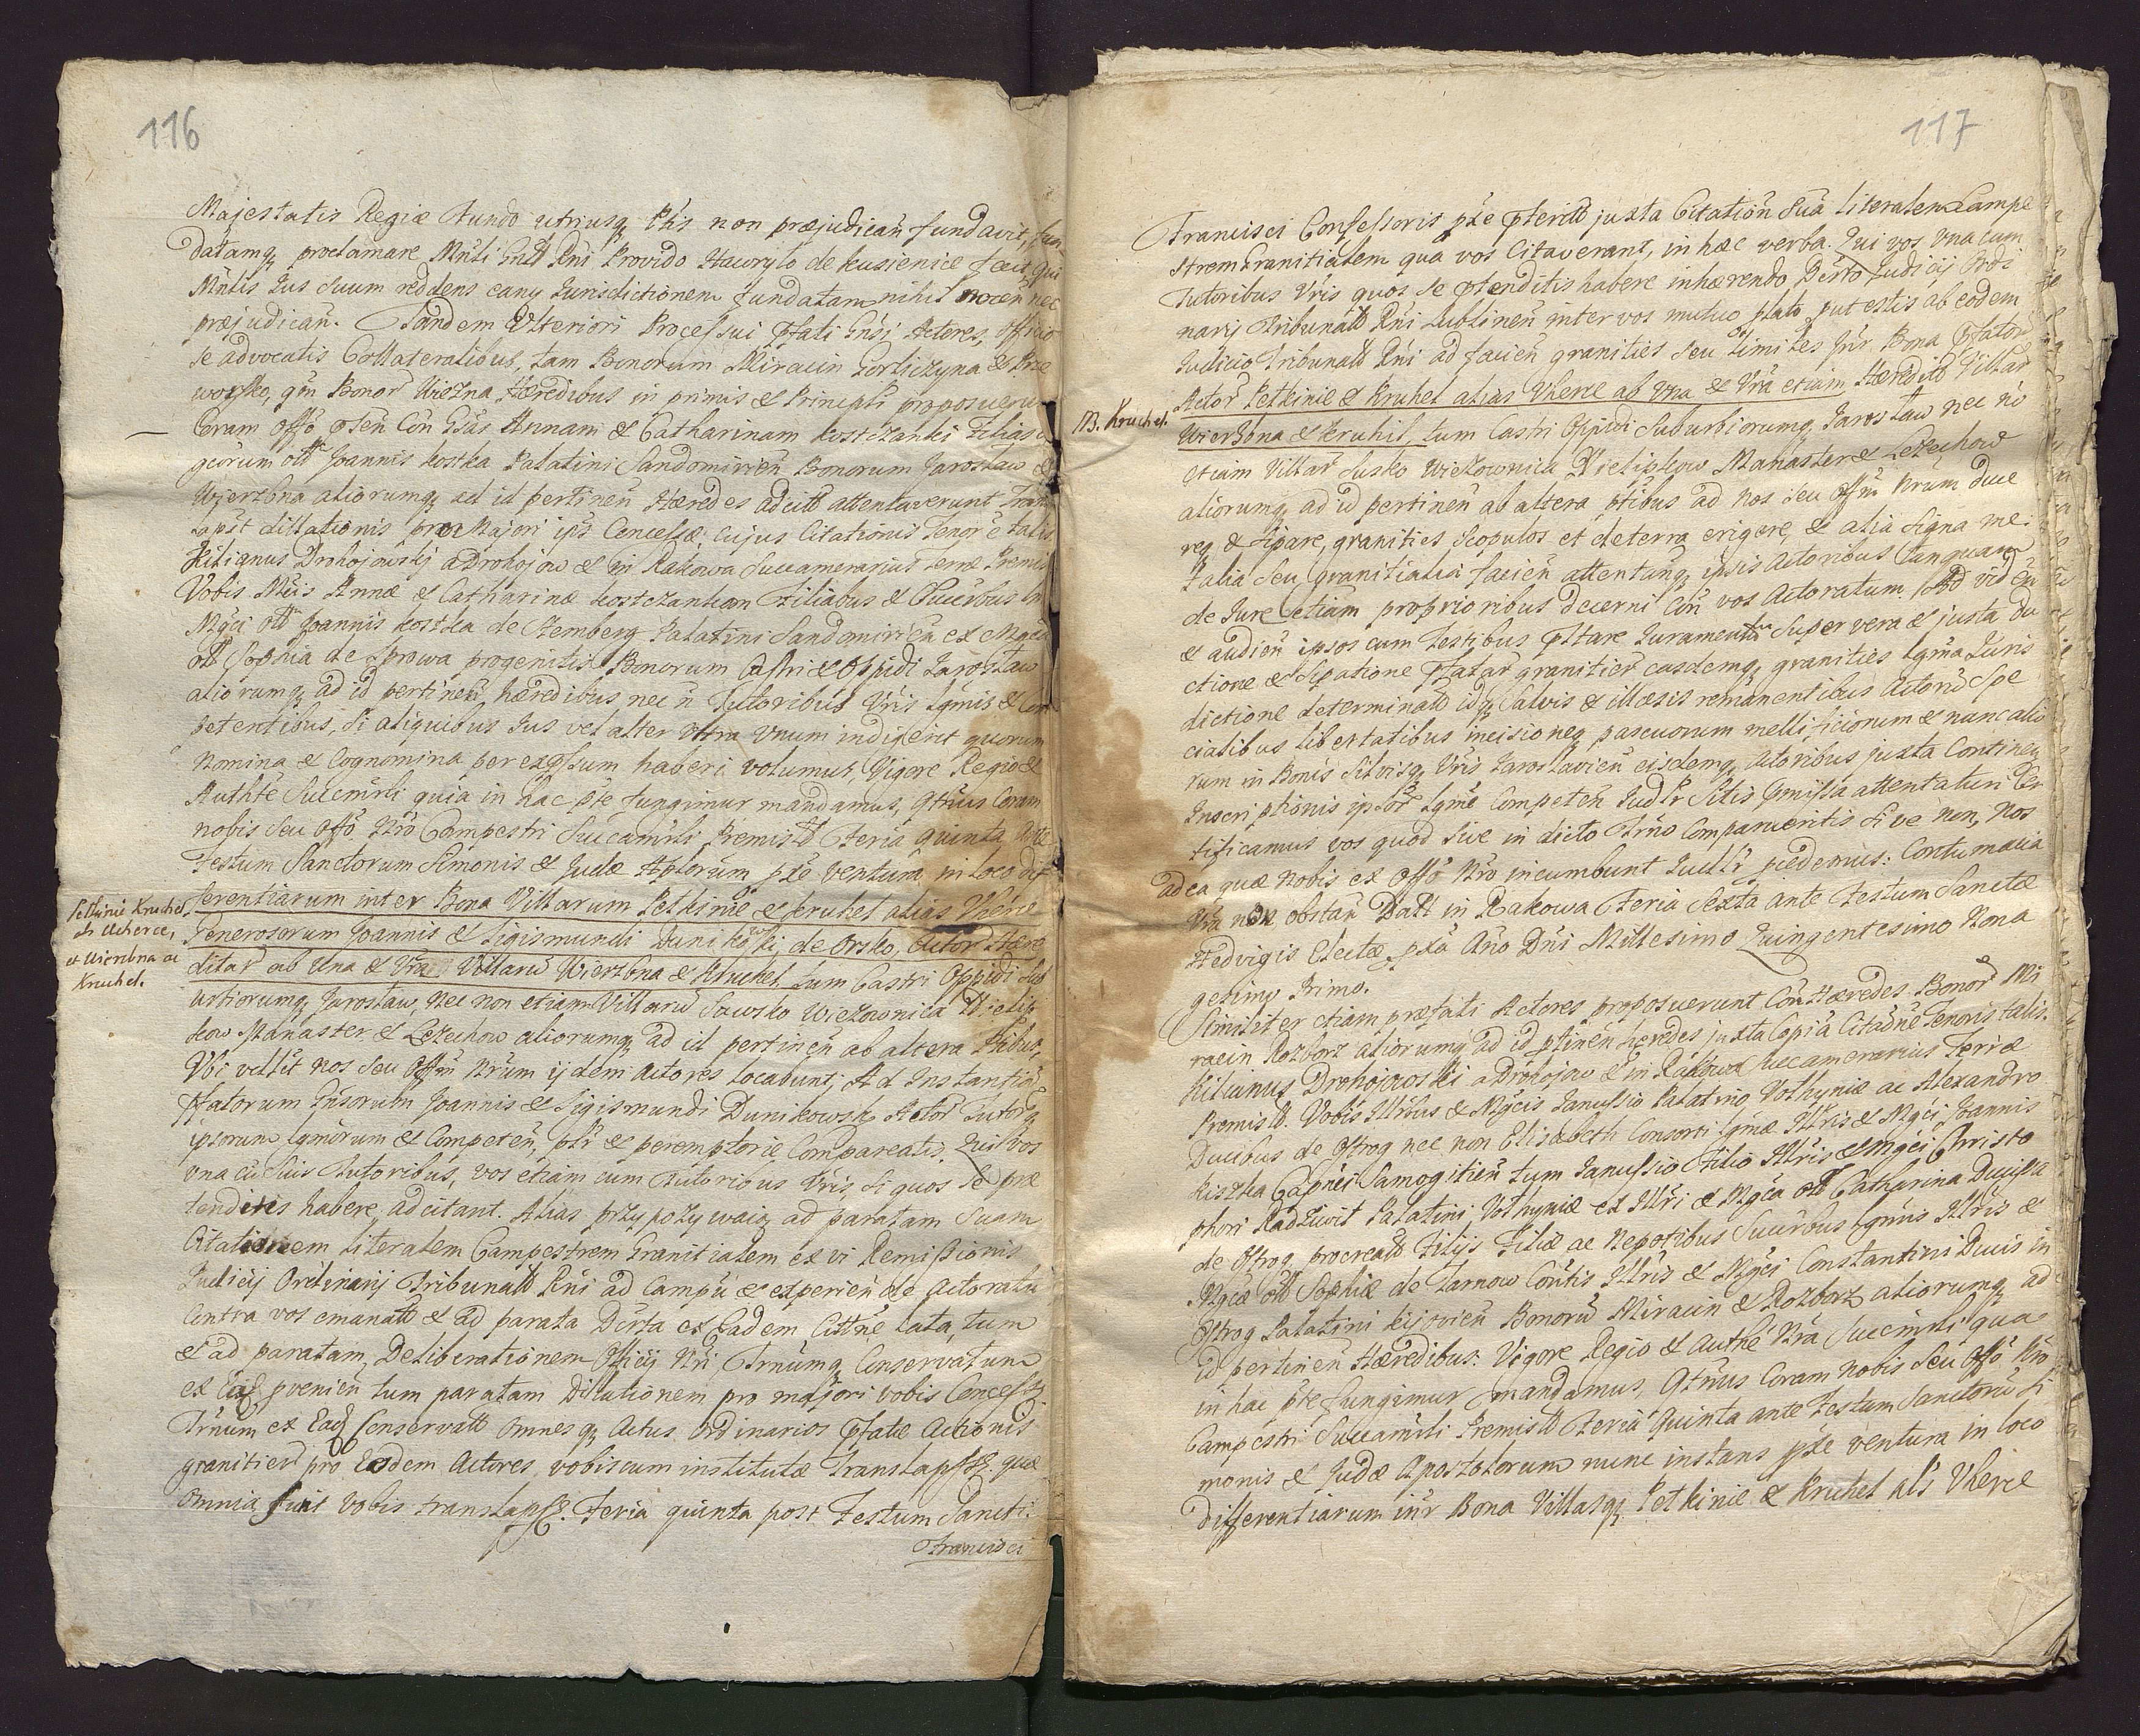 116
Majestatis Regiæ Fundo utriusq Ptis non præjudican̄ fundavit, fun
datamq proclamare Mntli Gnłi Rni Provido Hawryło de kusienice fecit, Qui
Mntlis Jus Suum reddens eanq Jurisdictionem fundatam nihil nocen̄ nec
præjudican̄. Tandem Ulteriori Processui pfati Gnsi Actores, officio
se advocatis Collateralibus, tam Bonorum Miracin Gorliczyna & Prze
worsko, qm Bonor Wiezna Hæredibus in primis & Principlr proposuerunt
Coram offo pten̄ Con Gsas Annam & Catharinam kostczanki Filias
gcorum olł Joannis kostka Palatini Sandomirien̄ Bonorum Jarosław &
Wierzbna aliorumq ad id pertinen̄ Hæredes adcitł attentaverunt Trans
lapsit dillationis pro Majori ips Concessæ, cujus Citationis Tenor e talis
Kilianus Drohojowskj a Drohojow & in Rakowa Succamerarius Terræ Premisł
Vobis Mcis Annæ & Catharinæ kostczankom Filiabus & Succrbus
Mgci olł Joannis kostka de Stemberg Palatini Sandomirien̄ ex Mgca
olł Sophia de Sprowa progenitis Bonorum Castri & Oppidi Jarosław
aliorumq ad id pertinen̄ hæredibus, nec n̄ Tutoribus Vris lgmis & Com
petentibus, si aliquibus Jus vel alter vtra vnum indigerit quorum
Nomina & Cognomina per expssum haberi volumus, Vigore Regio &
Authte Succmrli quia in hac pte fungimur mandamus, Qtnus Coram
nobis seu offo Nro Campestri Succamrli Premisł Feria quinta ante
Festum Sanctorum Simonis & Judæ Aplorum pxe ventura in loco dif
Petkinie Kruchel
ds Ucherce,
et Wierzbna ac
Kruchel.
ferentiarum inter Bona Villarum Petkinie & kruhel alias Vherce
Generosorum Joannis & Sigismundi Dunikowski de Orsko, Actor Hære
ditar ab Una & Vra Villarū Wierzbna & Kruhel tum Castri Oppidi Sub
urbiorumq Jarosław, nec non etiam Villarū Sowsko Wiezownica Wielip
kow Manaster & Lezechow aliorumq ad id pertinen̄ ab altera Ptibus,
Vbi vellit nos seu Offm Nrum ijdem Actores locabunt; Ad Instantiā
Pfatorum Gnsorum Joannis & Sigismundi Dunikowski Actor Tutorq
ipsorum lgmorum & Competen̄, plr & peremptorie Compareatis. Qui vos
vna cū suis Tutoribus, vos etiam cum Tutoribus Vris, si quos se præ
tenditis habere, adcitant. Alias przypozywaią ad paratam Suam
Citationem literalem Campestrem Granicialem ex vi Remissionis
Judicij Ordinarij Tribunalł Rni ad Campū & experien̄ de Actoratu
Contra vos emanałł & ad parata Dcrta ex Eadem Cittne lata, tum
& ad paratam Deliberationem Officij Nri Trnumq Conservatum
ex Eaq pvenien̄ tum paratam Dillationem pro majori vobis Concessq
Trnum ex Eaq Conservatł omnesq Actus Ordinarios Pfatæ Actionis
granitier pro Eosdem Actores vobiscum institutæ Translapssq. quæ
omnia fuit vobis translapsq. Feria quinta post Festum Sancti.
Francisci
117
Francisci Confessoris pxe pteritð juxta Citation̄ Suā literalem Campe
strem Granitialem qua vos Citaverant, in hæc verba. Qui vos Vna cum
Tutoribus Vris quos se ptenditis habere inhærendo Dcrto Judicij Ordi
narij Tribunalł Rni Lublinen̄ inter vos mutuo plato put estis ab eodem
Judicio Tribunalł Rni ad facien̄ granities seu Limites Jnr Bona Pfator
Actor Petkinie & Kruhel alias Vherce ab Vna & Vra etiam Hæreditb Villar
NB. Kruchel.
Wierzbna & kruhil, tum Castri Oppidi Suburbiorumq Jarosław nec nō
etiam Villar Susko Wiezownica Wielipkow Manaster & Lezechow
aliorumq ad id pertinen̄ ab altera ptibus ad nos seu Offm Nrum duce
req & sipare, granities Scopulos et de terra erigere, & alia Signa me:
talia seu granitialia facien̄ attentanq ipsis Actoribus tanquam
de Jure etiam proprioribus decerni Con̄ vos Actoratum. Ad viden̄
& audien̄ ipsos cum Testibus Pstare Juramentum super vera & justa du
ctione & sipatione Pfatar granitier easdemq granities lgma Juris
dictione determinatð idq Salvis & illæsis remanentibus Actorū Spe
cialibus libertatibus incisioneq pascuorum mellificiorum & nunc alio
rum in Bonis Silvisq Vris Jaroslavien̄ eisdemq Actoribus juxta Continen̄
Inscriptionis ipsor lgme Competen̄ Judlr Sitis pmissa attentaturi Cer
tificamus vos quod sive in dicto Trno Comparueritis sive non, Nos
ad ea quæ nobis ex Offo Nro incumbunt Judlr pcedemus: Contumacia
Vra non obstan̄ Datt in Rakowa Feria Sexta ante Festum Sanctæ
Hedvigis Electæ pxa Aṅo Dni Millesimo Quingentesimo Nona
gesimo Primo.
Similiter etiam præfati Actores proposuerunt Con Hæredes Bonor Mi
racin Rozborz aliorumq ad id ptinen̄ hæredes juxta Copiā Citādne Tenoris talis.
Kilianus Drohojowski a Drohojow & in Rakowa Succamerarius Terræ
Premisł. Vobis Illrbus & Mgcis Janussio Palatino Volhyniæ ac Alexandro
Ducibus de Ostrog nec non Elisabeth Consorti lgmæ Illris & Mgci Joannis
kiszka Capnei Samogitien̄ tum Janussio Filio Illris & Mgci Christo
phori Radziwił Palatini Volhyniæ ex Illri & Mgca olł Catharina Ducissa
de Ostrog procreatð Filijs Filiæ ac Nepotibus Succrbus lgmis Illris &
Mgcæ olł Sophiæ de Tarnow Contis Illris & Mgci Constantini Ducis in
Ostrog Palatini kijovien̄ Bonorū Miracin & Rozborz aliorumq ad
id pertinen̄ Hæredibus: Vigore Regio & Authe Nra Succmrli qua
in hac pte fungimur mandamus, Qtnus Coram nobis seu Offo Nro
Campestri Succamrli Premisł Feria Quinta ante Festum Sanctorū Si
monis & Judæ Apostolorum nunc instans pxe ventura in loco
differentiarum inr Bona Villasq Petkinie & Kruhel als Vherce